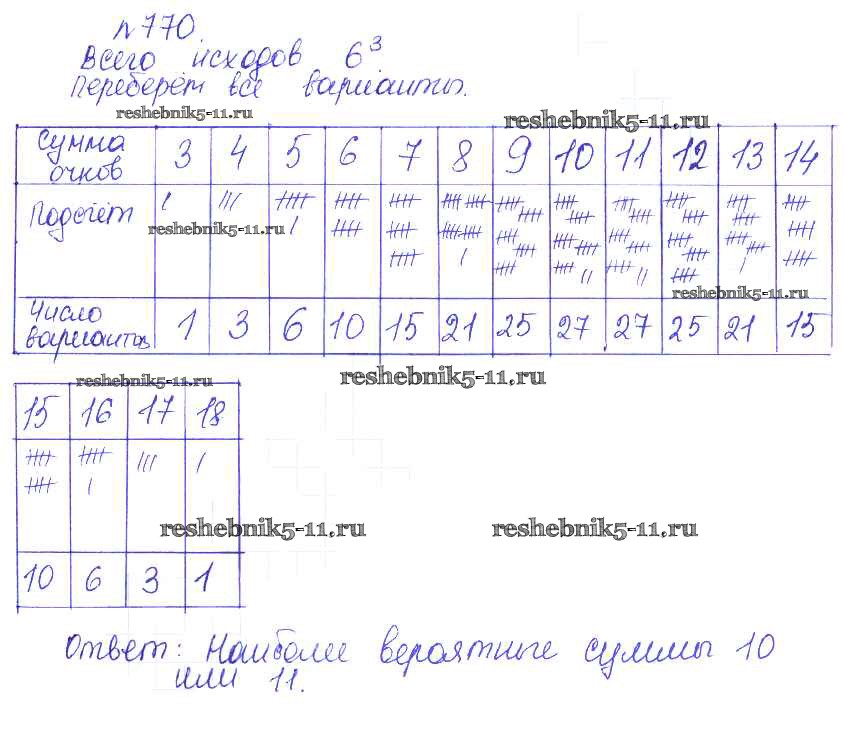 №770.
Всего исходов 6³
Переберём все варианты.
reshebnik5-11.ru
reshebnik5-11.ru
Сумма очков 3 4 5 6 7 8 9 10 11 12 13 14
Подсчёт
reshebnik5-11.ru
reshebnik5-11.ru
Число вариантов 1 3 6 10 15 21 25 27 27 25 21 15
reshebnik5-11.ru
reshebnik5-11.ru
15 16 17 18
reshebnik5-11.ru
reshebnik5-11.ru
10 6 3 1
Ответ: Наиболее вероятные суммы 10
или 11.